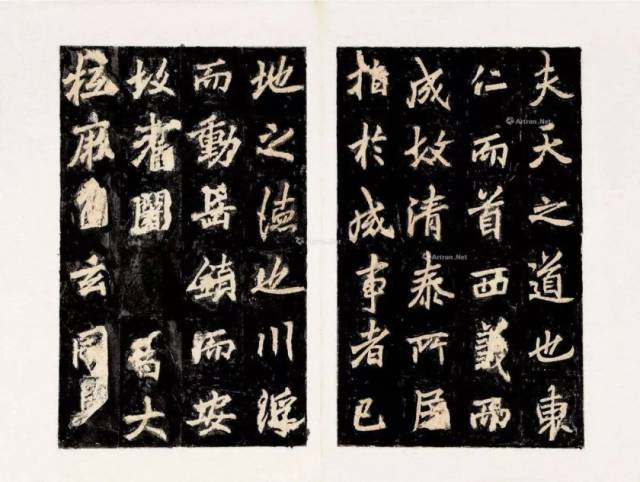 夫天之道也東
仁而首西義而
成故清泰所居
指於成事者已
地之德也川浮
而動岳鎮而安
故耆闍大
麻玄同